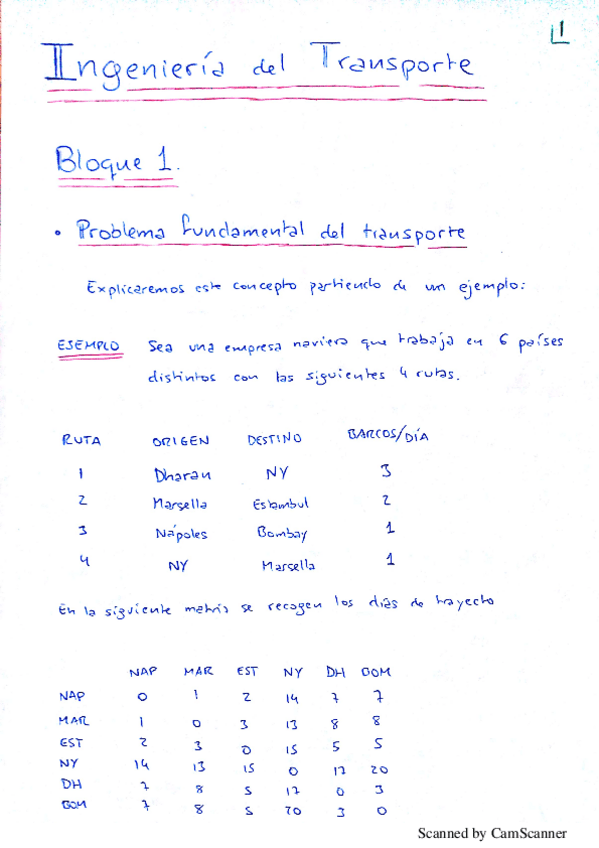 1
Ingeniería del Transporte
Bloque 1.
• Problema fundamental del transporte
Explicaremos este concepto partiendo de un ejemplo:
EJEMPLO Sea una empresa naviera que trabaja en 6 países
distintos con las siguientes 4 rutas.
RUTA ORIGEN DESTINO BARCOS/DÍA
1 Dharan NY 3
2 Marsella Estambul 2
3 Nápoles Bombay 1
4 NY Marsella 1
En la siguiente matriz se recogen los días de trayecto
NAP MAR EST NY DH BOM
NAP 0 1 2 14 7 7
MAR 1 0 3 13 8 8
EST 2 3 0 15 5 5
NY 14 13 15 0 17 20
DH 7 8 5 17 0 3
BOM 7 8 5 20 3 0
Scanned by CamScanner